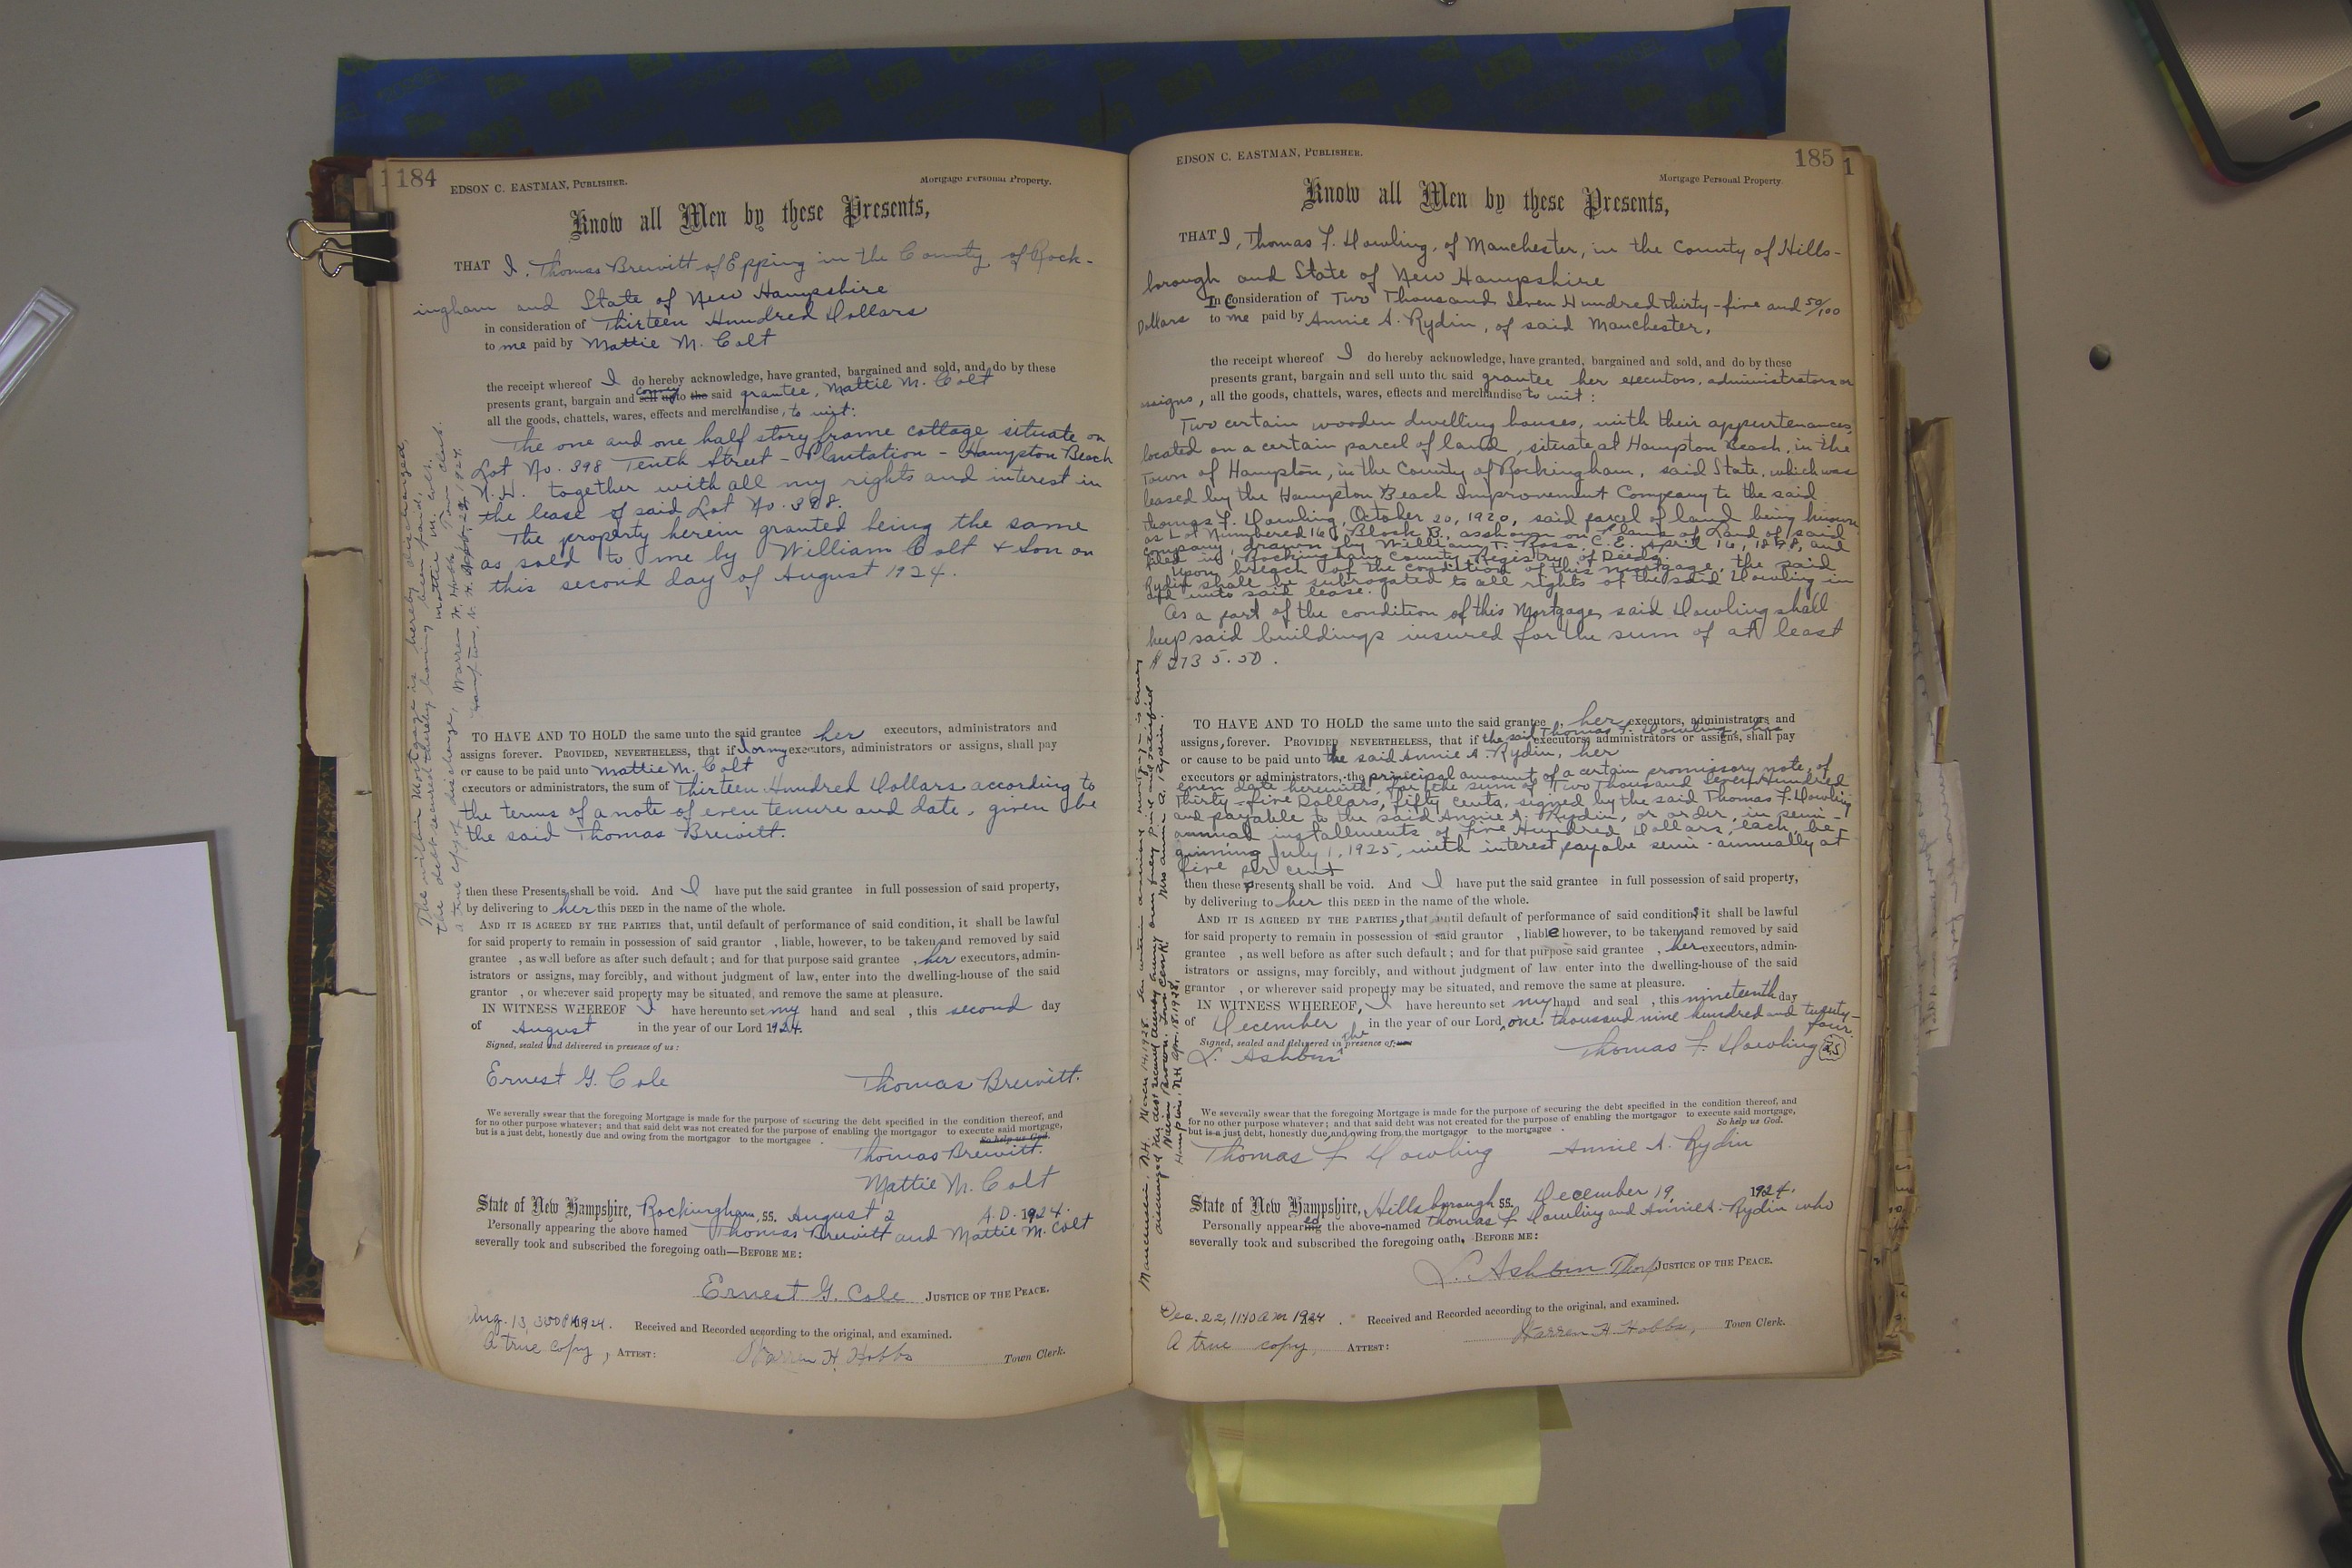 184
EDSON C. EASTMAN, PUBLISHER.
Mortgage Personal Property.
Know all Men by these Presents,
THAT I, Thomas Brewitt of Epping in the County of Rock-
ingham and State of New Hampshire
in consideration of Thirteen Hundred Dollars
to me paid by Mattie M. Colt
the receipt whereof I do hereby acknowledge, have granted, bargained and sold, and do by these
presents grant, bargain and sell unto the said convey grantee, Mattie M. Colt
all the goods, chattels, wares, effects and merchandise, to wit:
The one and one half story frame cottage situate on
Lot No. 398 Tenth Street - Plantation - Hampton Beach
N.H. together with all my rights and interest in
the lease of said Lot No. 398.
The property herein granted being the same
as sold to me by William Colt & Son on
this second day of August 1924.
TO HAVE AND TO HOLD the same unto the said grantee her executors, administrators and
assigns forever. PROVIDED, NEVERTHELESS, that if I or my executors, administrators or assigns, shall pay
or cause to be paid unto Mattie M. Colt
executors or administrators, the sum of Thirteen Hundred Dollars according to
the terms of a note of even tenure and date, given by
the said Thomas Brewitt.
then these Presents shall be void. And I have put the said grantee in full possession of said property,
by delivering to her this DEED in the name of the whole.
AND IT IS AGREED BY THE PARTIES that, until default of performance of said condition, it shall be lawful
for said property to remain in possession of said grantor , liable, however, to be taken and removed by said
grantee , as well before as after such default; and for that purpose said grantee , her executors, admin-
istrators or assigns, may forcibly, and without judgment of law, enter into the dwelling-house of the said
grantor , or wherever said property may be situated, and remove the same at pleasure.
IN WITNESS WHEREOF I have hereunto set my hand and seal , this second day
of August in the year of our Lord 1924.
Signed, sealed and delivered in presence of us:
Ernest G. Cole Thomas Brewitt.
We severally swear that the foregoing Mortgage is made for the purpose of securing the debt specified in the condition thereof, and
for no other purpose whatever; and that said debt was not created for the purpose of enabling the mortgagor to execute said mortgage,
but is a just debt, honestly due and owing from the mortgagor to the mortgagee . So help us God.
Thomas Brewitt.
Mattie M. Colt
State of New Hampshire, Rockingham, SS. August 2 A.D. 1924.
Personally appearing the above named Thomas Brewitt and Mattie M. Colt
severally took and subscribed the foregoing oath—BEFORE ME:
Ernest G. Cole JUSTICE OF THE PEACE.
Aug. 13, 3:00 PM 1924. Received and Recorded according to the original, and examined.
A true copy, ATTEST: Warren H. Hobbs Town Clerk.
The within Mortgage is hereby discharged,
the debt secured thereby having been paid,
Mattie M. Colt.
a true copy of discharge, Warren H. Hobbs Town Clerk.
Hampton, N.H. 1924
185
EDSON C. EASTMAN, PUBLISHER.
Mortgage Personal Property.
Know all Men by these Presents,
THAT I, Thomas F. Dowling, of Manchester, in the County of Hills-
borough and State of New Hampshire
In Consideration of Two Thousand Seven Hundred thirty-five and 50/100
Dollars to me paid by Annie A. Rydin, of said Manchester,
the receipt whereof I do hereby acknowledge, have granted, bargained and sold, and do by these
presents grant, bargain and sell unto the said grantee her executors, administrators or
assigns, all the goods, chattels, wares, effects and merchandise to wit:
Two certain wooden dwelling houses, with their appurtenances,
located on a certain parcel of land, situate at Hampton Beach, in the
Town of Hampton, in the County of Rockingham, said State, which was
leased by the Hampton Beach Improvement Company to the said
Thomas F. Dowling, October 20, 1920, said parcel of land being known
as Lot Numbered 16, Block B., as shown on Plans of Land of said
Company, drawn by William T. Ross, C.E. April 16, 1898, and
filed in Rockingham County Registry of Deeds.
Upon breach of the condition of this mortgage, the said
Rydin shall be subrogated to all rights of the said Dowling in
and unto said lease.
As a part of the condition of this Mortgage, said Dowling shall
keep said buildings insured for the sum of at least
$2735.50.
TO HAVE AND TO HOLD the same unto the said grantee , her executors, administrators and
assigns, forever. PROVIDED, NEVERTHELESS, that if the said Thomas F. Dowling, his executors, administrators or assigns, shall pay
or cause to be paid unto the said Annie A. Rydin, her
executors or administrators, the principal amount of a certain promissory note, of
even date herewith, for the sum of Two Thousand Seven Hundred
Thirty-five Dollars, fifty cents, signed by the said Thomas F. Dowling
and payable to the said Annie A. Rydin, or order, in semi-
annual installments of Five Hundred Dollars, each, be-
ginning July 1, 1925, with interest payabe semi-annually at
five per cent
then these presents shall be void. And I have put the said grantee in full possession of said property,
by delivering to her this DEED in the name of the whole.
AND IT IS AGREED BY THE PARTIES, that, until default of performance of said conditions it shall be lawful
for said property to remain in possession of said grantor , liable however, to be taken and removed by said
grantee , as well before as after such default; and for that purpose said grantee , her executors, admin-
istrators or assigns, may forcibly, and without judgment of law enter into the dwelling-house of the said
grantor , or wherever said property may be situated, and remove the same at pleasure.
IN WITNESS WHEREOF, I have hereunto set my hand and seal , this nineteenth day
of December in the year of our Lord, one thousand nine hundred and twenty-
four
Signed, sealed and delivered in the presence of us
L. Ashton Thomas F. Dowling L.S.
We severally swear that the foregoing Mortgage is made for the purpose of securing the debt specified in the condition thereof, and
for no other purpose whatever; and that said debt was not created for the purpose of enabling the mortgagor to execute said mortgage,
but is a just debt, honestly due and owing from the mortgagor to the mortgagee . So help us God.
Thomas F Dowling Annie A. Rydin
State of New Hampshire, Hillsborough SS. December 19, 1924.
Personally appeared the above-named Thomas F Dowling and Annie A. Rydin who
severally took and subscribed the foregoing oath, BEFORE ME:
L. Ashton Thorp JUSTICE OF THE PEACE.
Dec. 22, 11:40 A M 1924. Received and Recorded according to the original, and examined.
A true copy, ATTEST: Warren H. Hobbs, Town Clerk.
Manchester, N.H. March 14, 1928. The within mortgage is
discharged the debt secured thereby having been fully paid and satisfied
Mrs Annie A. Rydin.
William Brown. Town Clerk
Hampton, N.H. Apr. 18, 1928.